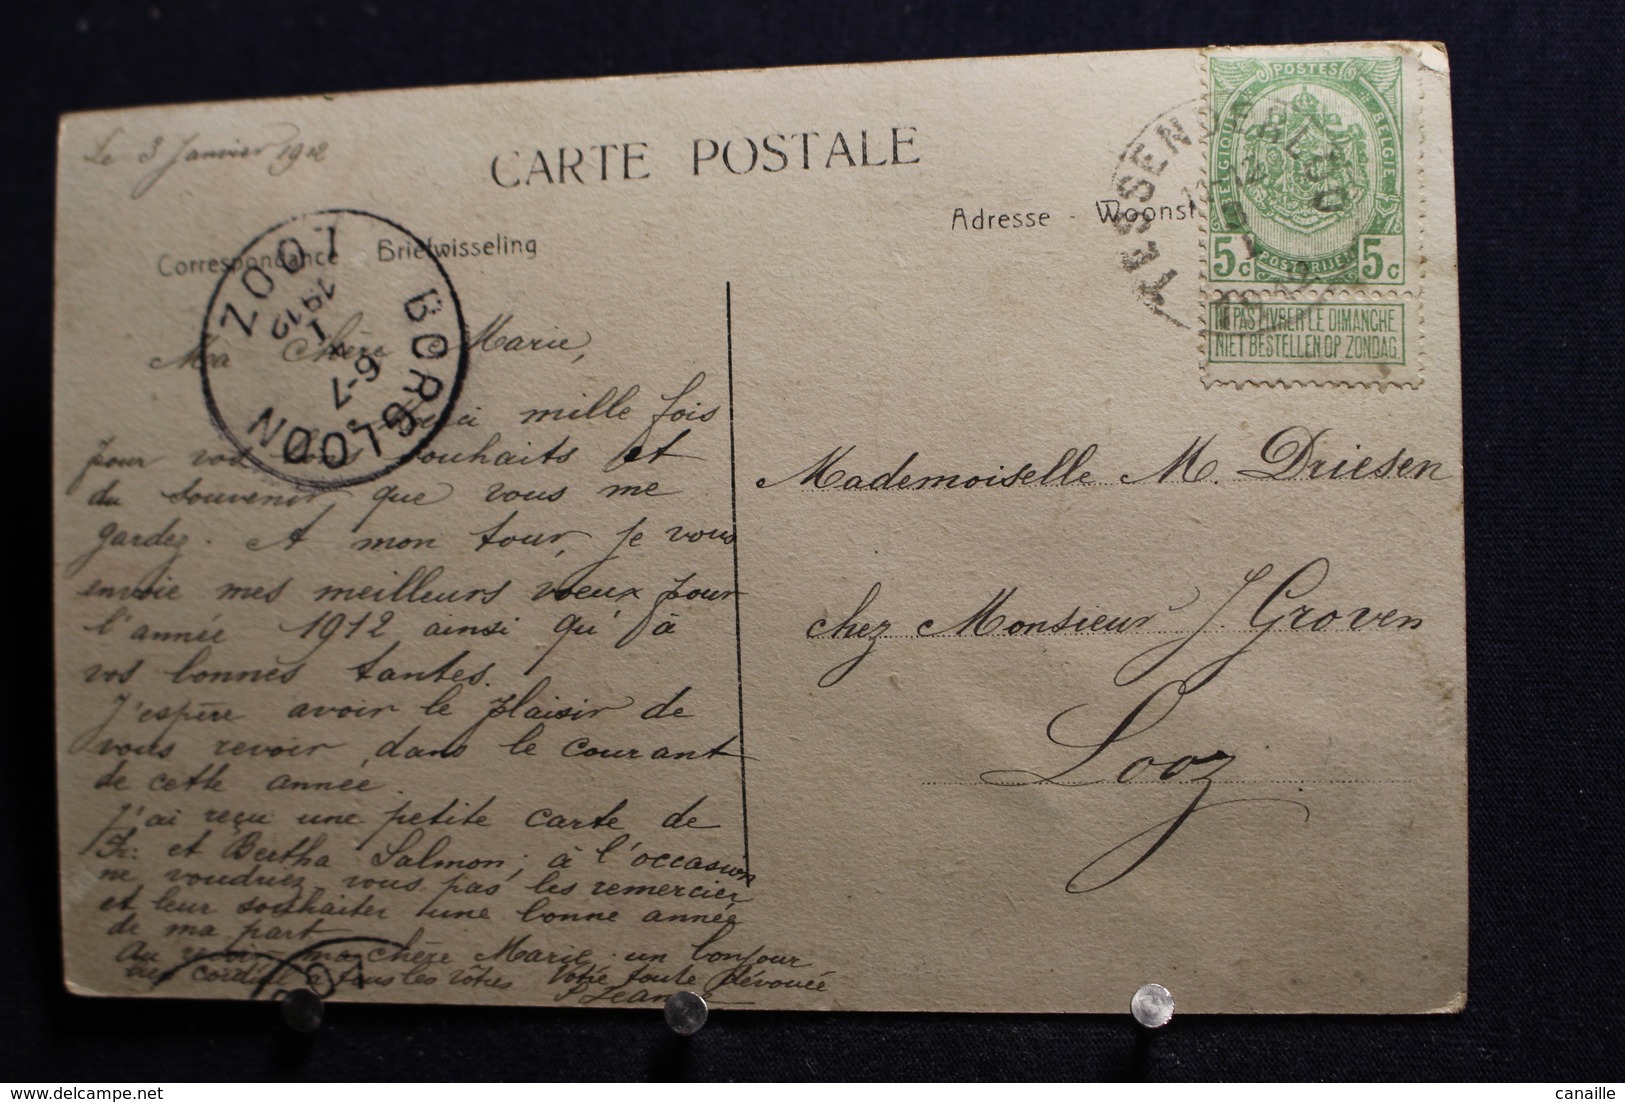 Le 3 Janvier 1912
CARTE POSTALE
Correspondance Briefwisseling
Adresse - Woonst
LOOZ
BORGLOON
6-7
I
1912
TESSENDERLOO
POSTES
BELGIQUE
BELGIË
5c 5c
POSTERIJEN
NE PAS LIVRER LE DIMANCHE
NIET BESTELLEN OP ZONDAG
Ma Chère Marie,
Merci mille fois
pour vos bons souhaits et
du souvenir que vous me
gardez. A mon tour, je vous
envoie mes meilleurs voeux pour
l'année 1912 ainsi qu'à
vos bonnes tantes.
J'espère avoir le plaisir de
vous revoir dans le courant
de cette année.
J'ai reçu une petite carte de
Fr. et Bertha Salmon; à l'occasion
ne voudriez vous pas les remercier
et leur souhaiter une bonne année
de ma part.
Au revoir ma chère Marie un bonjour
cordial à tous les vôtres Votre toute dévouée
Mademoiselle M. Driesen
chez Monsieur J. Groven
Looz
canaille